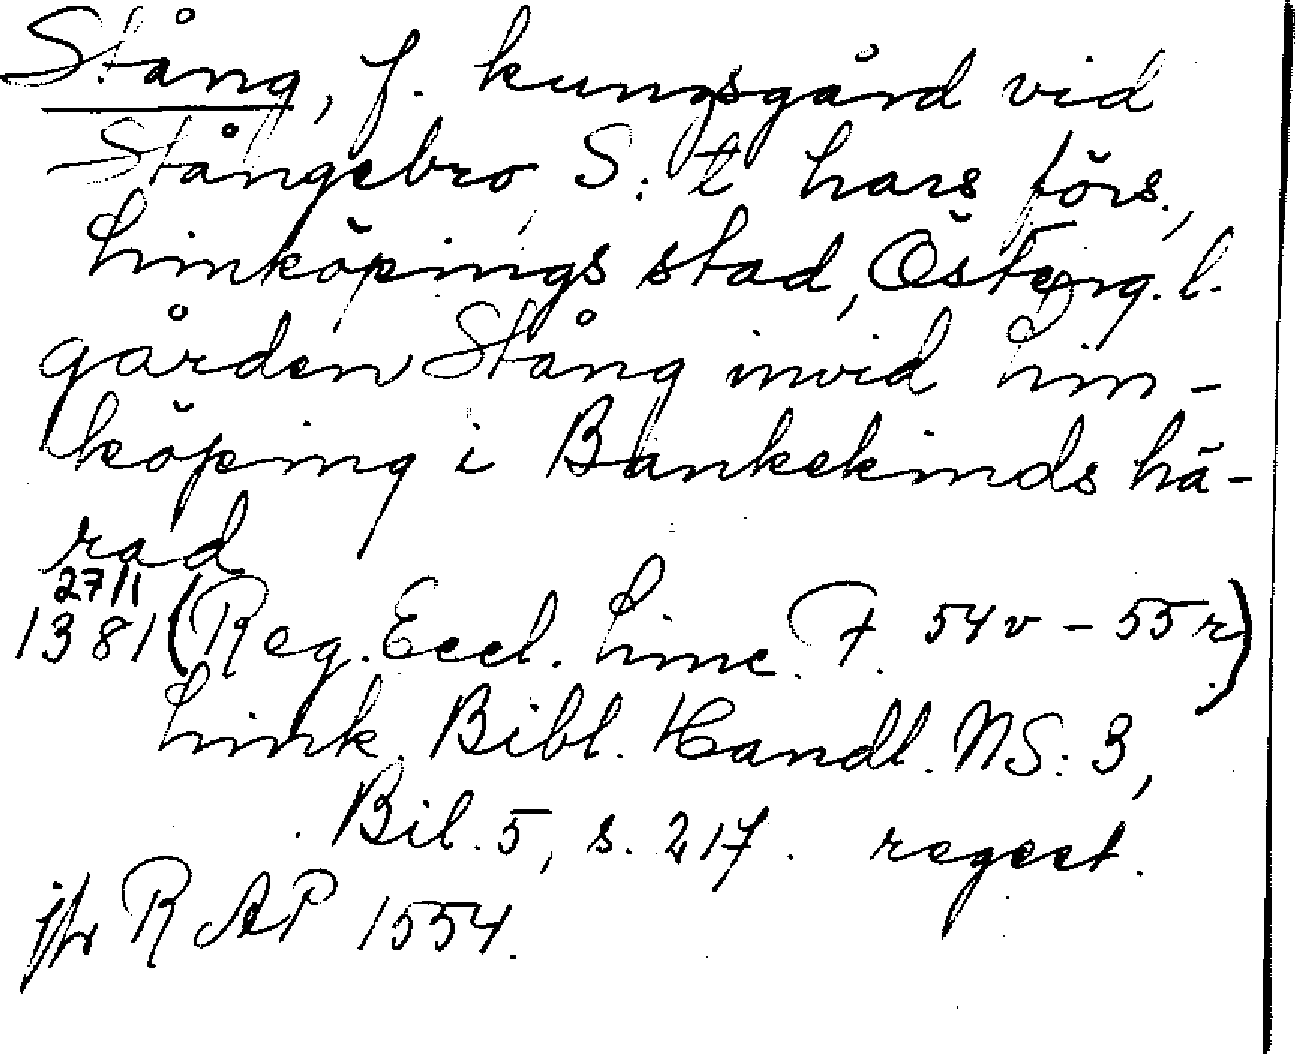 Stång, f. kungsgård vid
Stångebro, S:t Lars förs.,
Linköpings stad, Österg. l.
gården Stång invid Lin-
köping i Bankekinds hä-
rad
27/1
1381 (Reg. Eccl. Linc. F. 54v - 55r)
Link. Bibl. Handl. NS: 3,
Bil. 5, s. 217. regest.
jfr RAP 1554.